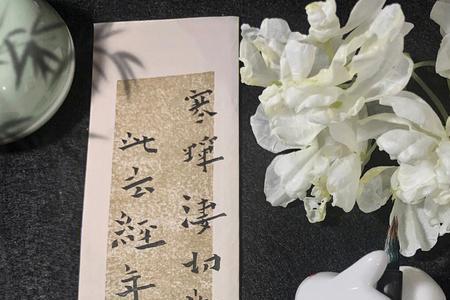 寒蟬淒切
此去經年